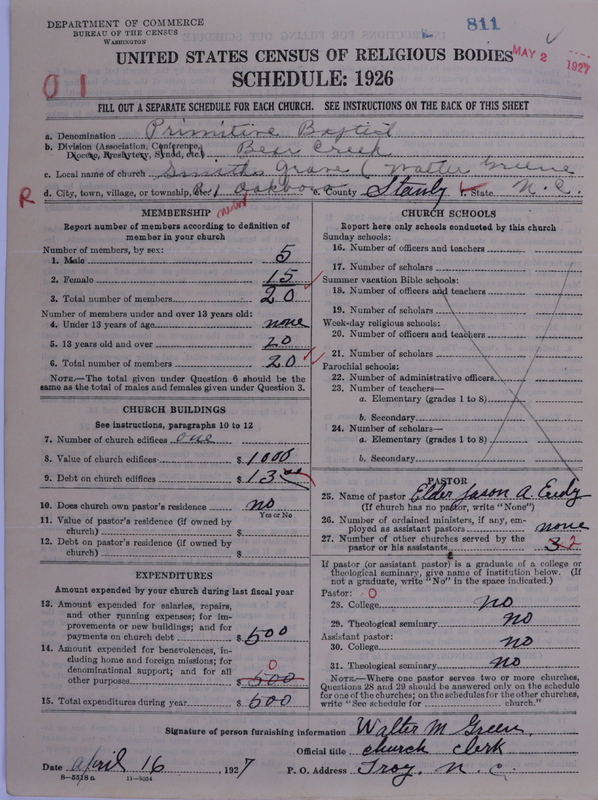 DEPARTMENT OF COMMERCE
BUREAU OF THE CENSUS
WASHINGTON
811
MAY 2 1927
UNITED STATES CENSUS OF RELIGIOUS BODIES
SCHEDULE: 1926
01
FILL OUT A SEPARATE SCHEDULE FOR EACH CHURCH. SEE INSTRUCTIONS ON THE BACK OF THIS SHEET
a. Denomination Primitive Baptist
b. Division (Association, Conference, Diocese, Presbytery, Synod, etc.) Bear Creek
c. Local name of church Smiths Grove (Walter Greene
R d. City, town, village, or township, R.1 Oakboro e. County Stanly f. State N. C.
near
MEMBERSHIP
Report number of members according to definition of member in your church
Number of members, by sex:
1. Male 5
2. Female 15
3. Total number of members 20
Number of members under and over 13 years old:
4. Under 13 years of age none
5. 13 years old and over 20
6. Total number of members 20
NOTE.—The total given under Question 6 should be the same as the total of males and females given under Question 3.
CHURCH BUILDINGS
See instructions, paragraphs 10 to 12
7. Number of church edifices one
8. Value of church edifices $ 1000
9. Debt on church edifices $ 13
10. Does church own pastor's residence no
Yes or No
11. Value of pastor's residence (if owned by church) $
12. Debt on pastor's residence (if owned by church) $
EXPENDITURES
Amount expended by your church during last fiscal year
13. Amount expended for salaries, repairs, and other running expenses; for improvements or new buildings; and for payments on church debt $ 500
14. Amount expended for benevolences, including home and foreign missions; for denominational support; and for all other purposes $ 500 0
15. Total expenditures during year $ 500
CHURCH SCHOOLS
Report here only schools conducted by this church
Sunday schools:
16. Number of officers and teachers
17. Number of scholars
Summer vacation Bible schools:
18. Number of officers and teachers
19. Number of scholars
Week-day religious schools:
20. Number of officers and teachers
21. Number of scholars
Parochial schools:
22. Number of administrative officers
23. Number of teachers—
a. Elementary (grades 1 to 8)
b. Secondary
24. Number of scholars—
a. Elementary (grades 1 to 8)
b. Secondary
PASTOR
25. Name of pastor Elder Jason A Eudy
(If church has no pastor, write "None")
26. Number of ordained ministers, if any, employed as assistant pastors none
27. Number of other churches served by the pastor or his assistants 3 2
If pastor (or assistant pastor) is a graduate of a college or theological seminary, give name of institution below. (If not a graduate, write "No" in the space indicated.)
Pastor: 0
28. College no
29. Theological seminary no
Assistant pastor:
30. College no
31. Theological seminary no
NOTE.—Where one pastor serves two or more churches, Questions 28 and 29 should be answered only on the schedule for one of the churches; on the schedules for the other churches, write "See schedule for church."
Signature of person furnishing information Walter M Green
Official title church clerk
Date april 16, 1927 P. O. Address Troy, N. C.
8—5518a 11—9054